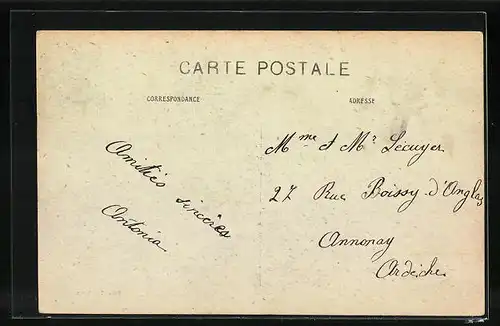 CARTE POSTALE
CORRESPONDANCE
ADRESSE
Amitiés sincères
Antonia
Mme et Mr Lecuyer
27 Rue Boissy-d'Anglas
Annonay
Ardèche